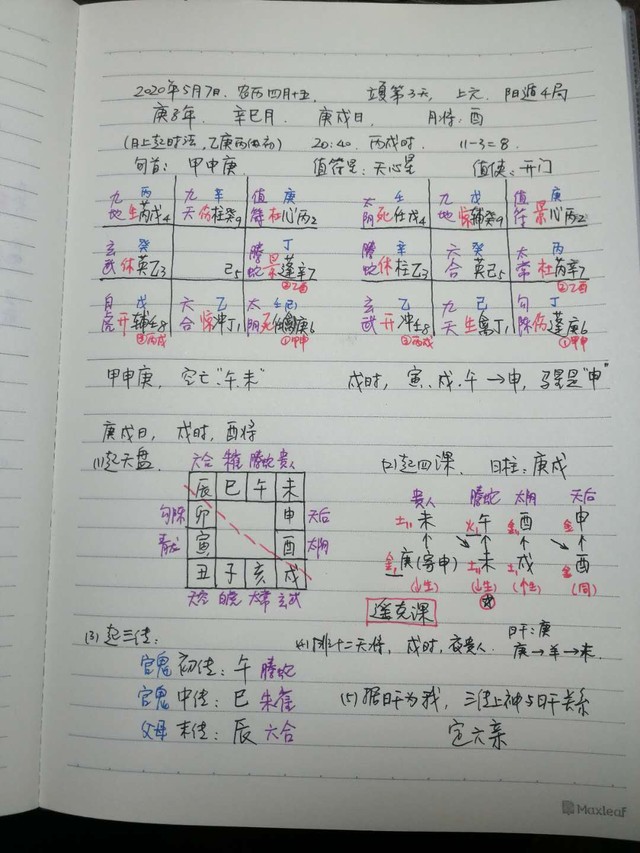 2020年5月7日. 农历四月十五, 立夏第3天, 上元, 阳遁4局
庚子年 辛巳月 庚戌日 月将: 酉
(日上起时法, 乙庚丙作初) 20:40. 丙戌时 11-3=8.
旬首: 甲申庚 值符星: 天心星 值使: 开门
九 丙 九 辛 值 庚 太 壬 九 戊 值 庚
地 生芮戊4 天 伤柱癸9 符 杜心丙2 阴 死任戊4 地 惊辅癸9 符 景心丙2
玄 癸 螣 丁 螣 辛 六 癸 太 丙
武 休英乙3 己5 蛇 景蓬辛7 蛇 休柱乙3 合 英己5 常 杜芮辛7
②乙酉 ②乙酉
白 戊 六 乙 太 壬己 玄 乙 九 己 勾 丁
虎 开辅壬8 合 惊冲丁1 阴 死任禽庚6 武 开冲壬8 天 生禽丁1 陈 伤蓬庚6
③丙戌 ①甲申 ③丙戌 ①甲申
甲申庚, 空亡"午.未" 戌时, 寅、戌、午→申, 马星是"申"
庚戌日, 戌时, 酉将
(1)起天盘 六合 朱雀 螣蛇 贵人 (2)起四课, 日柱: 庚戌
辰 巳 午 未 贵人 螣蛇 太阴 天后
勾陈 卯 申 天后 土 未 火 午 金 酉 金 申
青龙 寅 酉 太阴 金 庚(寄申) 土 未 土 戌 金 酉
丑 子 亥 戌 (↓生) (↓生) (↑生) (同)
天空 白虎 太常 玄武
遥克课
(3)起三传: (4)排十二天将, 戌时, 夜贵人. 日干: 庚
庚→羊→未.
官鬼 初传: 午 螣蛇
官鬼 中传: 巳 朱雀 (5)据日干为我, 三传上神与日干关系
父母 末传: 辰 六合 定六亲
Maxleaf